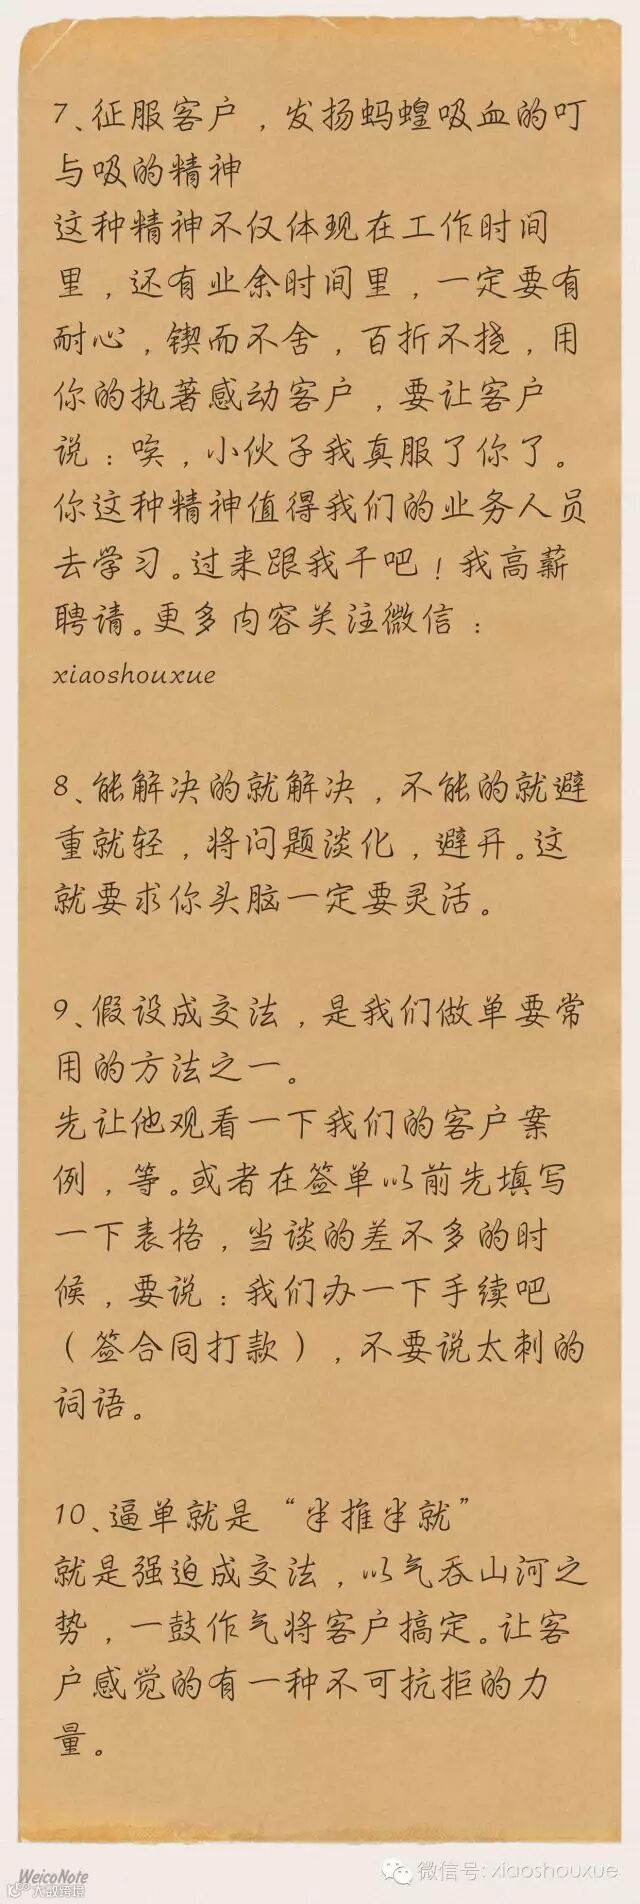 7、征服客户，发扬蚂蝗吸血的叮
与吸的精神
这种精神不仅体现在工作时间
里，还有业余时间里，一定要有
耐心，锲而不舍，百折不挠，用
你的执著感动客户，要让客户
说：唉，小伙子我真服了你了。
你这种精神值得我们的业务人员
去学习。过来跟我干吧！我高薪
聘请。更多内容关注微信：
xiaoshouxue
8、能解决的就解决，不能的就避
重就轻，将问题淡化，避开。这
就要求你头脑一定要灵活。
9、假设成交法，是我们做单要常
用的方法之一。
先让他观看一下我们的客户案
例，等。或者在签单以前先填写
一下表格，当谈的差不多的时
候，要说：我们办一下手续吧
（签合同打款），不要说太刺的
词语。
10、逼单就是“半推半就”
就是强迫成交法，以气吞山河之
势，一鼓作气将客户搞定。让客
户感觉的有一种不可抗拒的力
量。
WeicoNote
大数跨境
微信号: xiaoshouxue